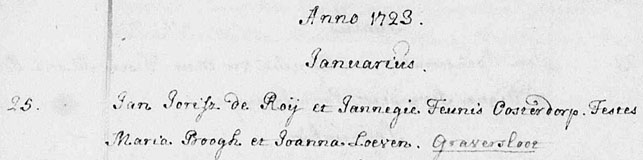 Anno 1723.
Januarius.
25. Jan Jorisz. de Roij et Jannegie Teunis Oosterdorp. Testes
Maria Proogh et Joanna Loeven. Graversloot